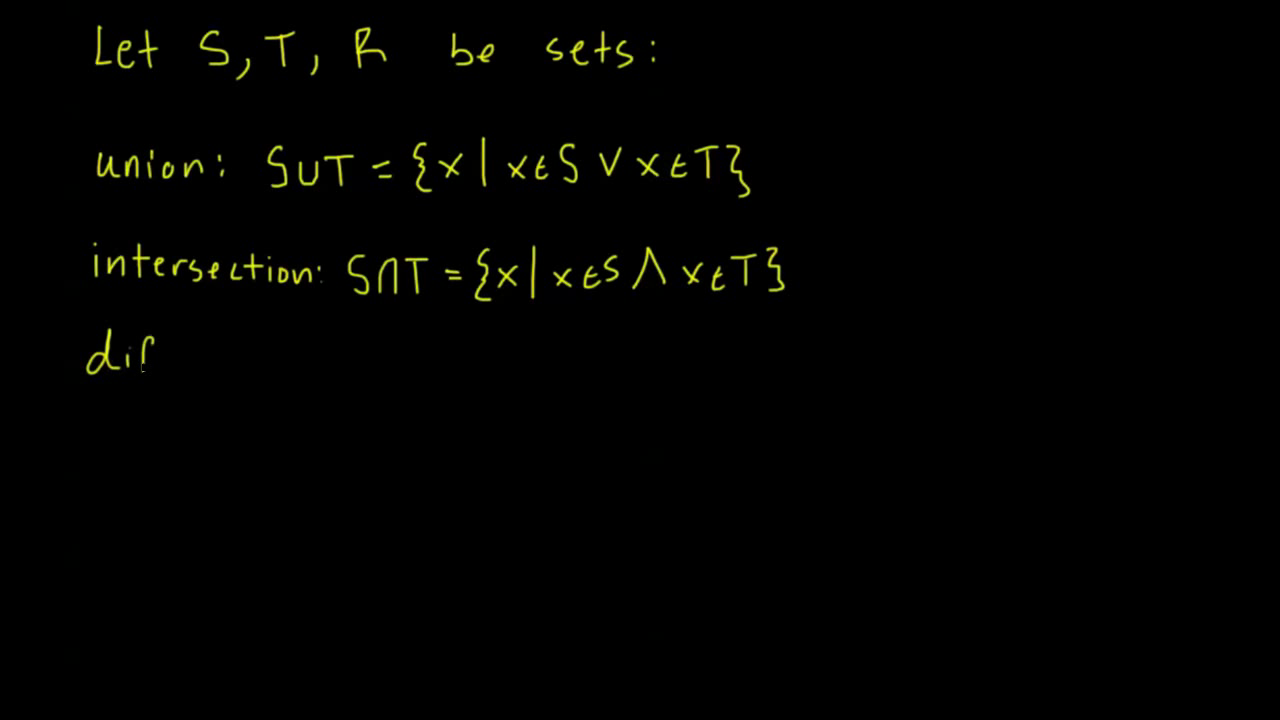 Let S, T, R be sets:
union: S∪T = {x | x∈S ∨ x∈T}
intersection: S∩T = {x | x∈S ∧ x∈T}
dif